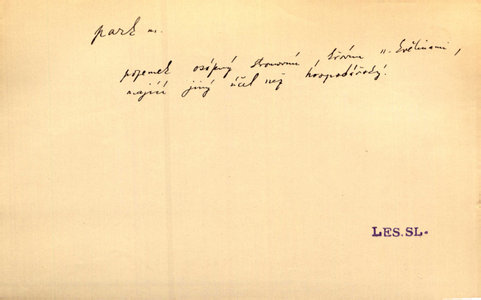 park m.
pozemek osázený stromovím, křovím n. květinami,
mající jiný účel než hospodářský.
LES. SL.